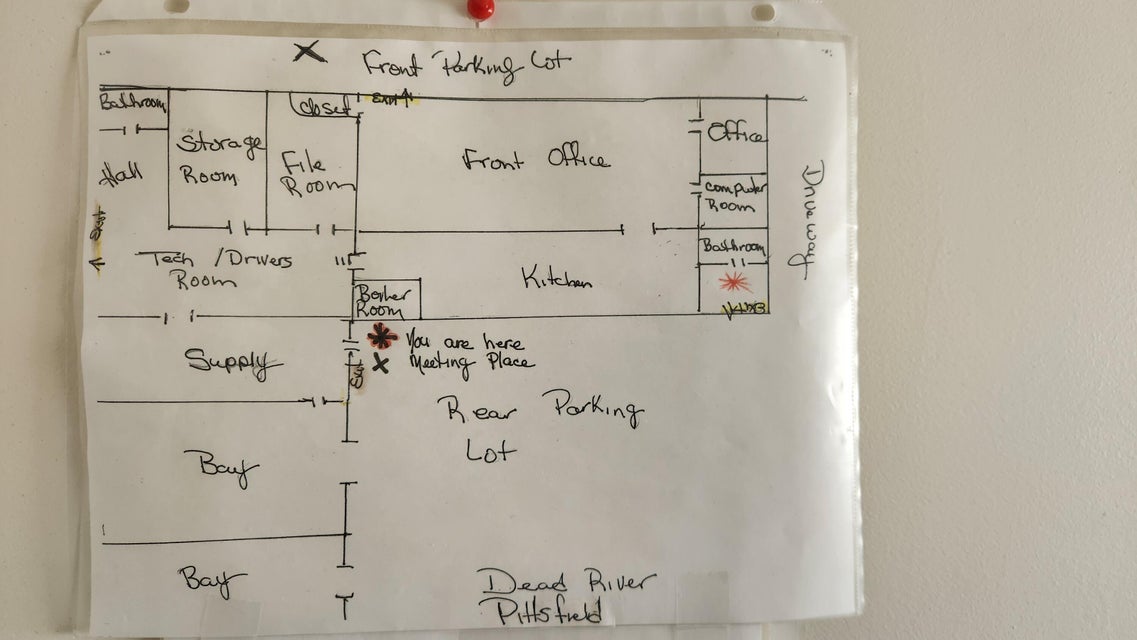 Front Parking Lot
Bathroom
Closet
EXIT
Office
Storage
Room
File
Room
Front Office
Hall
Computer
Room
Driveway
EXIT
Tech / Drivers
Room
Bathroom
Kitchen
Boiler
Room
EXIT
Supply
You are here
Meeting Place
Exit
Rear Parking
Lot
Bay
Bay
Dead River
Pittsfield